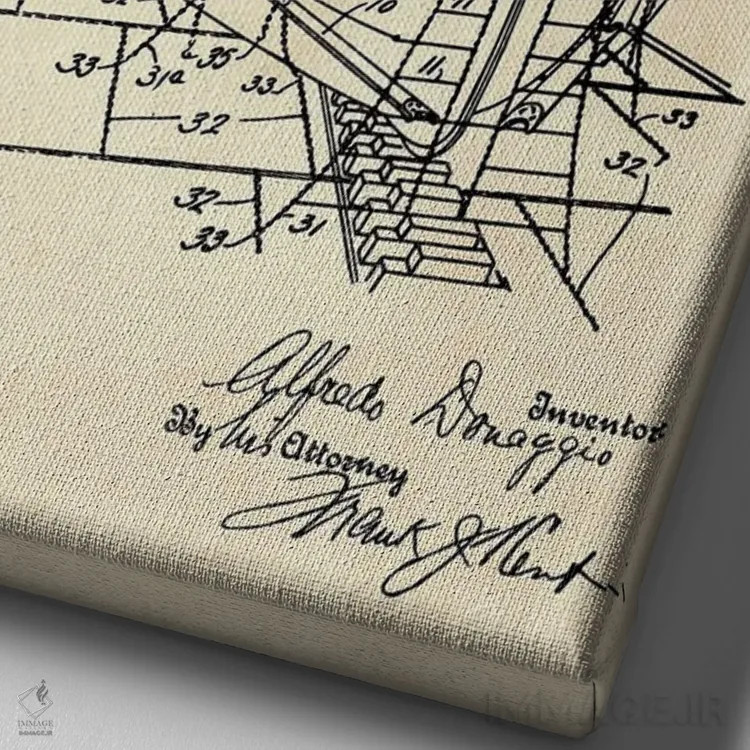 10
11
33
31a
35
33
11
33
32
32
32
31
33
Alfredo Donaggio
Inventor
By his Attorney
Frank J. Kent
IMMAGE
IMMAGE.IR
IMMAGE.IR